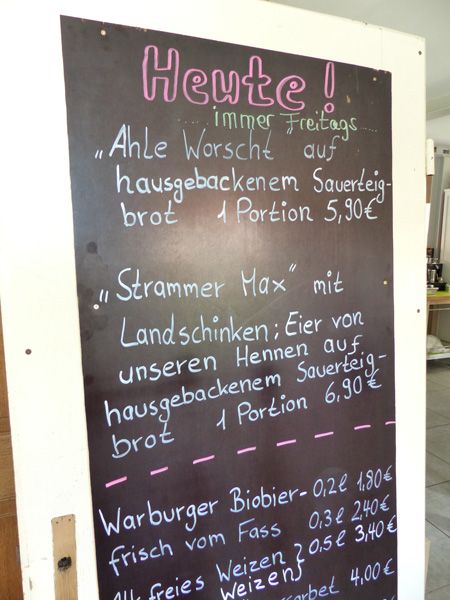 Heute!
immer Freitags.....
"Ahle Worscht" auf
hausgebackenem Sauerteig-
brot 1 Portion 5,90€
"Strammer Max" mit
Landschinken; Eier von
unseren Hennen auf
hausgebackenem Sauerteig-
brot 1 Portion 6,90€
Warburger Biobier- 0,2l 1,80€
frisch vom Fass 0,3l 2,40€
freies Weizen } 0,5l 3,40€
Weizen
4,00€